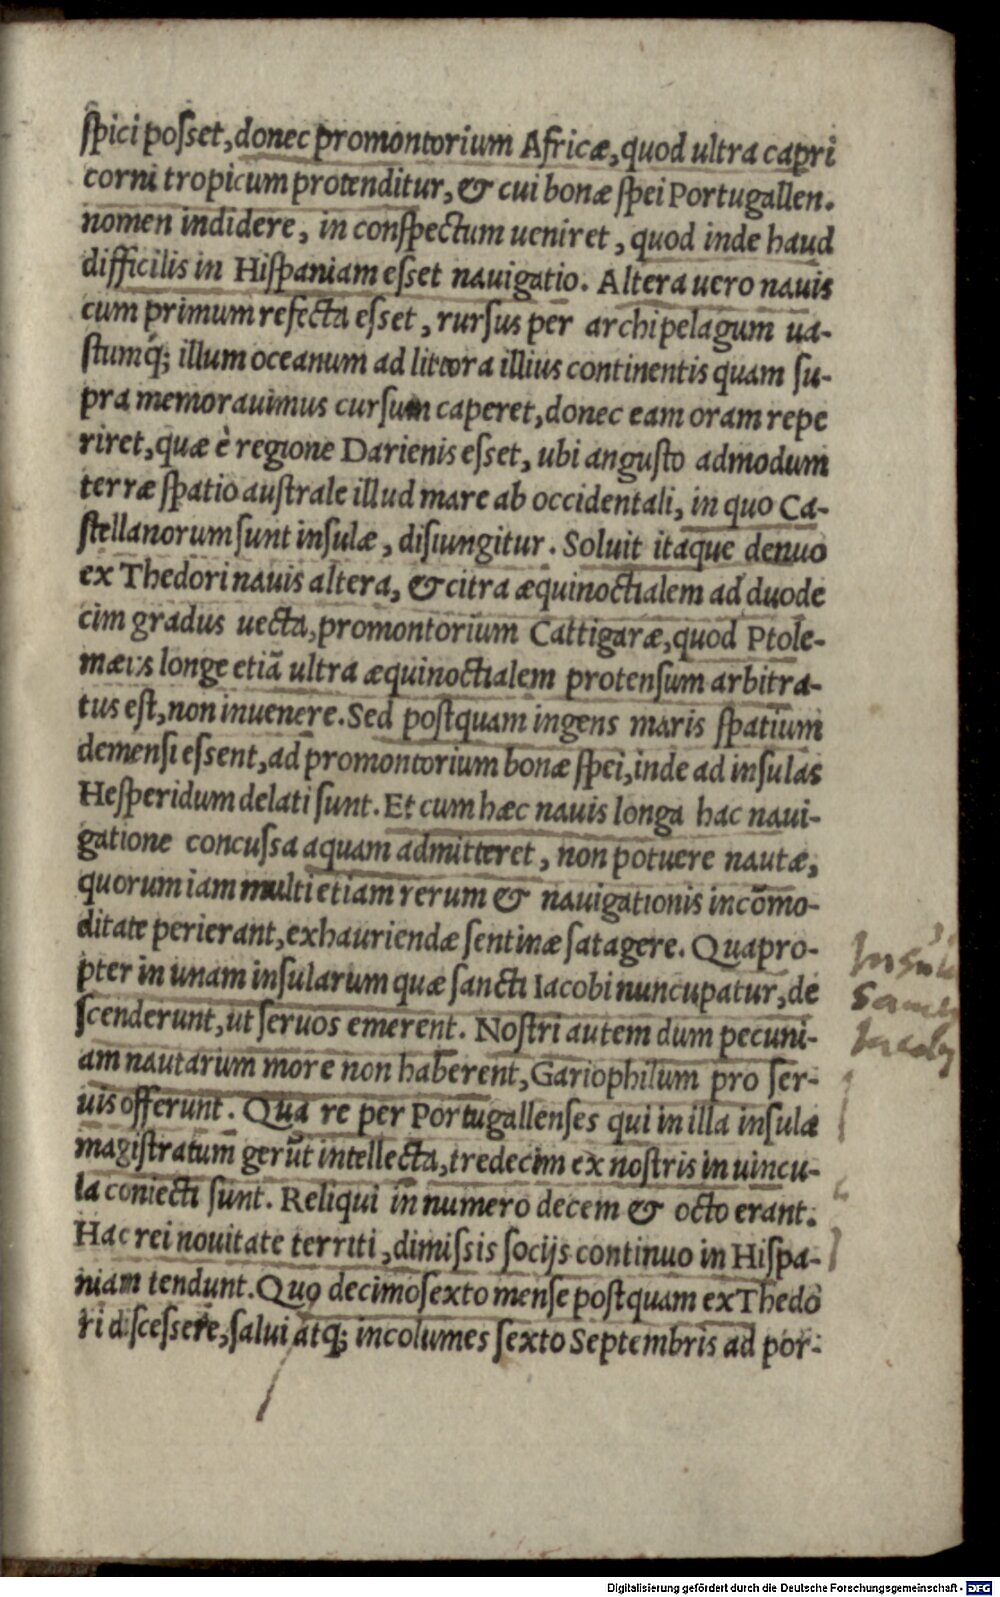 ſpici poſſet, donec promontorium Africæ, quod ultra capri
corni tropicum protenditur, & cui bonæ ſpei Portugallen.
nomen indidere, in conſpectum ueniret, quod inde haud
difficilis in Hiſpaniam eſſet nauigatio. Altera uero nauis
cum primum refecta eſſet, rurſus per archipelagum ua-
ſtumq́; illum oceanum ad littora illius continentis quam ſu-
pra memorauimus curſum caperet, donec eam oram repe
riret, quæ è regione Darienis eſſet, ubi anguſto admodum
terræ ſpatio auſtrale illud mare ab occidentali, in quo Ca-
ſtellanorum ſunt inſulæ, diſiungitur. Soluit itaque denuo
ex Thedori nauis altera, & citra æquinoctialem ad duode
cim gradus uecta, promontorium Cattigaræ, quod Ptole-
mæus longe etiã ultra æquinoctialem protenſum arbitra-
tus eſt, non inuenere. Sed poſtquam ingens maris ſpatium
demenſi eſſent, ad promontorium bonæ ſpei, inde ad inſulas
Heſperidum delati ſunt. Et cum hæc nauis longa hac naui-
gatione concuſſa aquam admitteret, non potuere nautæ,
quorum iam multi etiam rerum & nauigationis incõmo-
ditate perierant, exhauriendæ ſentinæ ſatagere. Quapro-
pter in unam inſularum quæ ſancti Iacobi nuncupatur, de
ſcenderunt, ut ſeruos emerent. Noſtri autem dum pecuni-
am nautarum more non haberent, Gariophilum pro ſer-
uis offerunt. Qua re per Portugallenſes qui in illa inſula
magiſtratum gerũt intellecta, tredecim ex noſtris in uincu-
la coniecti ſunt. Reliqui in numero decem & octo erant.
Hac rei nouitate territi, dimiſſis ſocijs continuo in Hiſpa-
niam tendunt. Quo decimoſexto menſe poſtquam ex Thedo
ri diſceſſere, ſalui atq; incolumes ſexto Septembris ad por-
Insule
Sancti
Iacoby
Digitalisierung gefördert durch die Deutsche Forschungsgemeinschaft - DFG